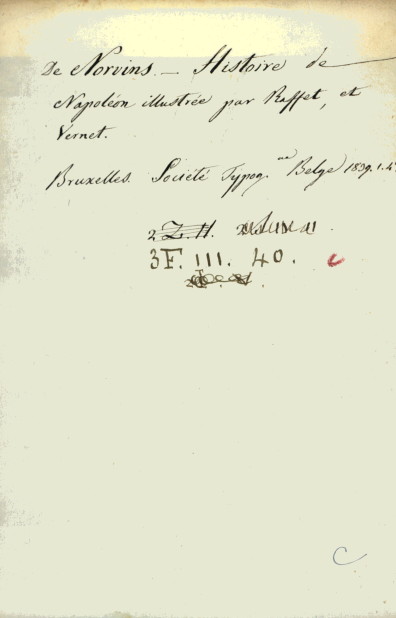 De Norvins — Histoire de
Napoléon illustrée par Raffet, et
Vernet.
Bruxelles. Société Typog.ue Belge 1839. 1.
3 F. III. 40.
C